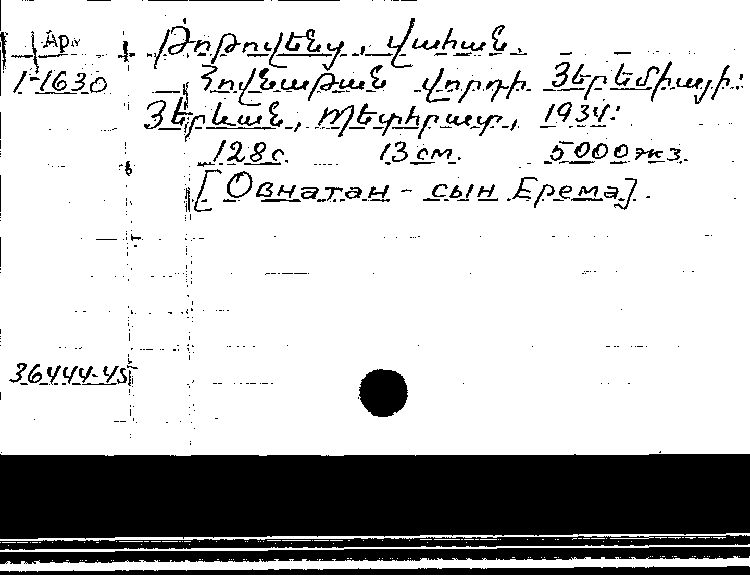 Арм
Թոթովենց, Վահան.
1-1630
Հովնաթան վորդի Յերեմիայի:
Յերևան, Պետհրատ, 1934:
128 с. 13 см. 5000 экз.
[Овнатан - сын Ерема].
36444-45